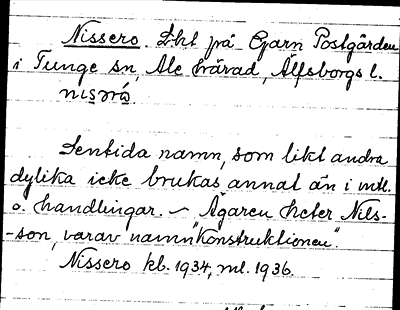 Nissero. Lht på Gjarn Postgården
i Tunge sn, Ale härad, Älfsborgs l.
Sentida namn, som likt andra
dylika icke brukas annat än i mtl.
o. handlingar. – Ägaren heter Nils-
-son, varav namn"konstruktionen".
Nissero kb. 1934, ml. 1936.